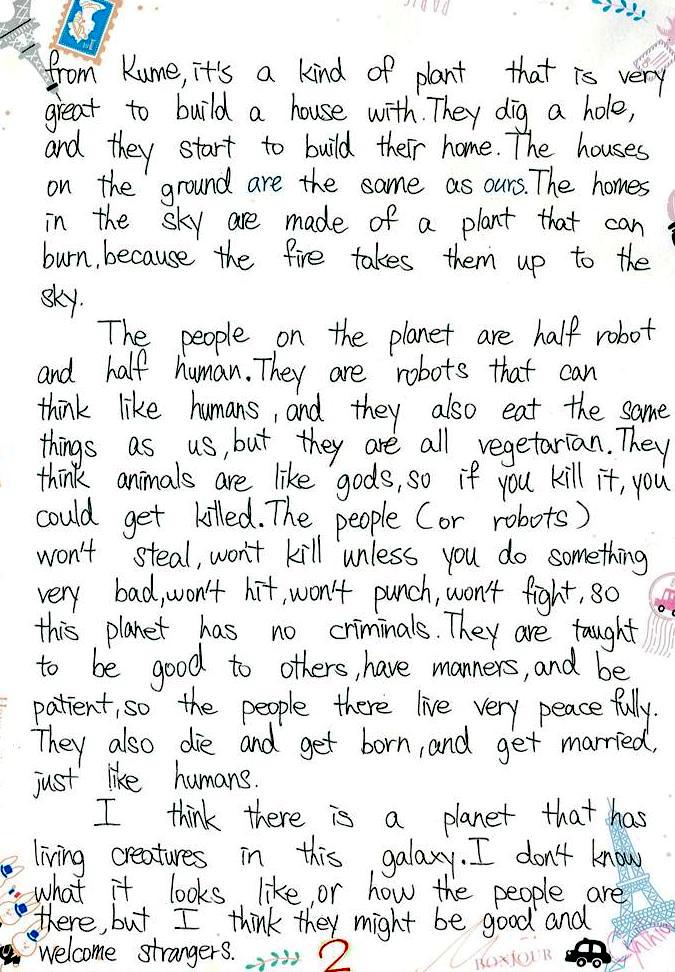 from Kume, it's a kind of plant that is very
great to build a house with. They dig a hole,
and they start to build their home. The houses
on the ground are the same as ours. The homes
in the sky are made of a plant that can
burn, because the fire takes them up to the
sky.
The people on the planet are half robot
and half human. They are robots that can
think like humans, and they also eat the same
things as us, but they are all vegetarian. They
think animals are like gods, so if you kill it, you
could get killed. The people (or robots)
won't steal, won't kill unless you do something
very bad, won't hit, won't punch, won't fight, so
this planet has no criminals. They are taught
to be good to others, have manners, and be
patient, so the people there live very peacefully.
They also die and get born, and get married,
just like humans.
I think there is a planet that has
living creatures in this galaxy. I don't know
what it looks like, or how the people are
there, but I think they might be good and
welcome strangers.
2
BONJOUR